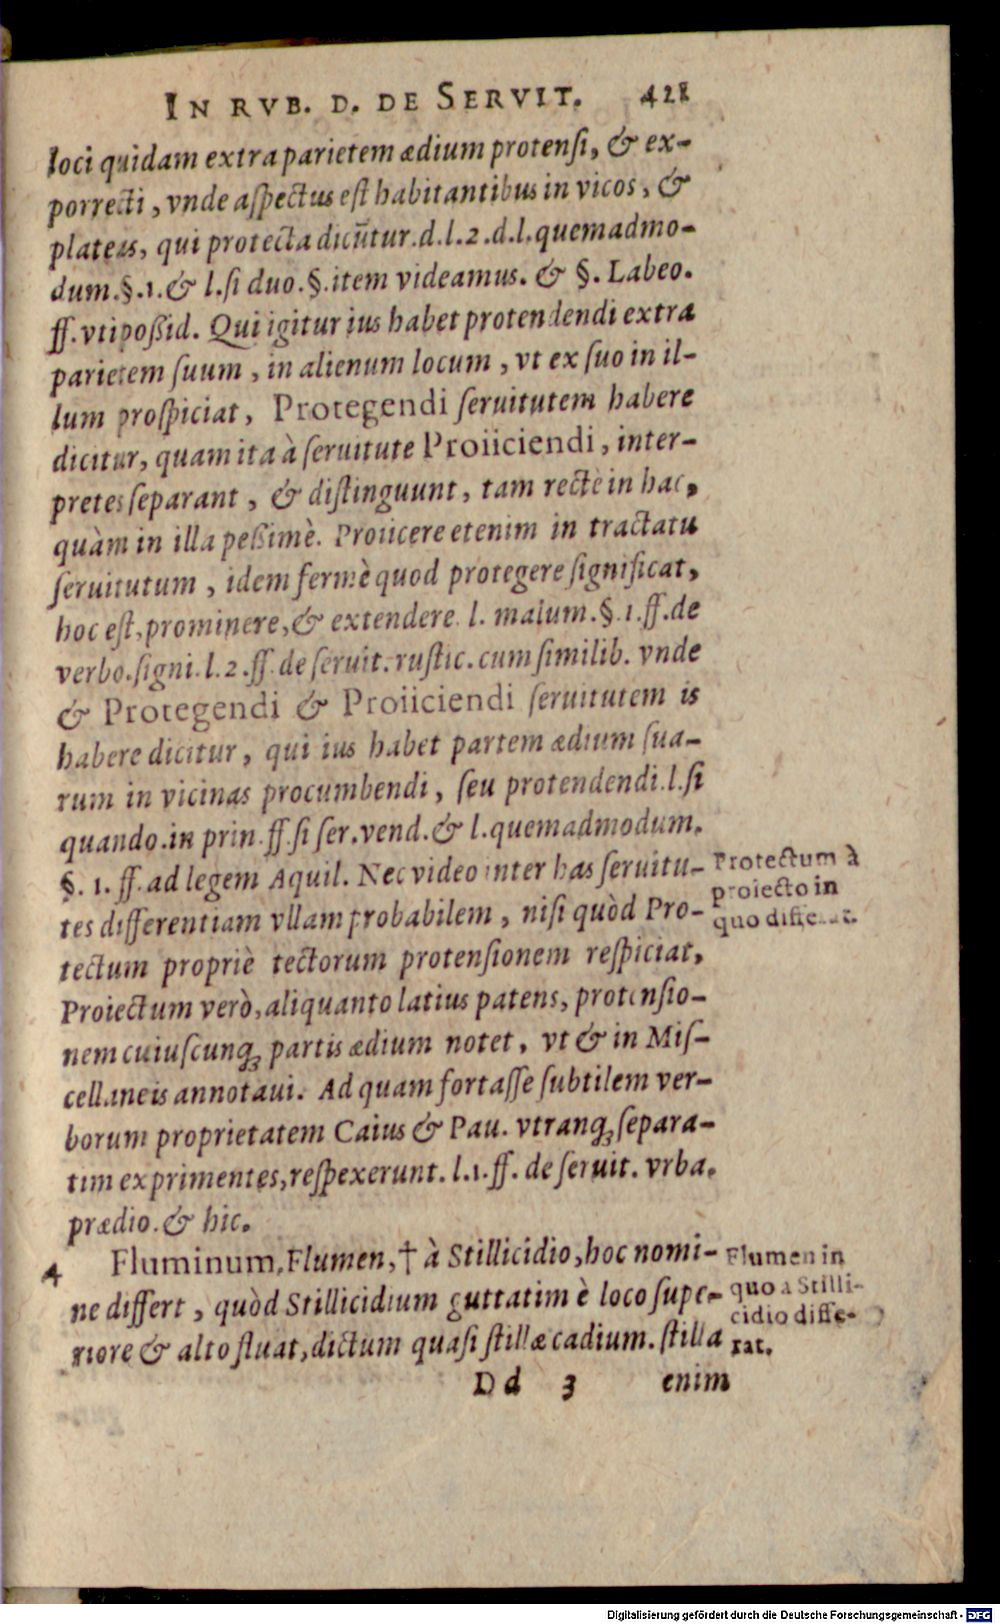 IN RVB. D. DE SERVIT. 421
loci quidam extra parietem ædium protensi, & ex-
porrecti, vnde aſpectus eſt habitantibus in vicos, &
plateas, qui protecta dicūtur.d.l.2.d.l.quemadmo-
dum.§.1.& l.ſi duo.§.item videamus. & §. Labeo.
ff.vti poßid. Qui igitur ius habet protendendi extra
parietem ſuum, in alienum locum, vt ex ſuo in il-
lum proſpiciat, Protegendi ſeruitutem habere
dicitur, quam ita à ſeruitute Proiiciendi, inter-
pretes ſeparant, & diſtinguunt, tam rectè in hac,
quàm in illa peßimè. Proiicere etenim in tractatu
ſeruitutum, idem fermè quod protegere ſignificat,
hoc eſt, prominere, & extendere. l. malum.§.1.ff.de
verbo.ſigni.l.2.ff.de ſeruit.ruſtic.cum ſimilib. vnde
& Protegendi & Proiiciendi ſeruitutem is
habere dicitur, qui ius habet partem ædium ſua-
rum in vicinas procumbendi, ſeu protendendi.l.ſi
quando.in prin.ff.ſi ſer.vend.& l.quemadmodum.
§. 1. ff.ad legem Aquil. Nec video inter has ſeruitu-
tes differentiam vllam probabilem, niſi quòd Pro-
tectum propriè tectorum protenſionem reſpiciat,
Proiectum verò, aliquanto latius patens, protenſio-
nem cuiuſcunq; partis ædium notet, vt & in Miſ-
cellaneis annotaui. Ad quam fortaſſe ſubtilem ver-
borum proprietatem Caius & Pau. vtranq; ſepara-
tim exprimentes, reſpexerunt. l.1.ff. de ſeruit. vrba.
prædio. & hic.
Protectum à
proiecto in
quo differat.
4 Fluminum. Flumen, † à Stillicidio, hoc nomi-
ne differt, quòd Stillicidium guttatim è loco ſupe-
riore & alto fluat, dictum quaſi ſtillæ cadium. ſtilla
Flumen in
quo a Stilli-
cidio diffe-
rat.
Dd 3 enim
Digitalisierung gefördert durch die Deutsche Forschungsgemeinschaft - DFG